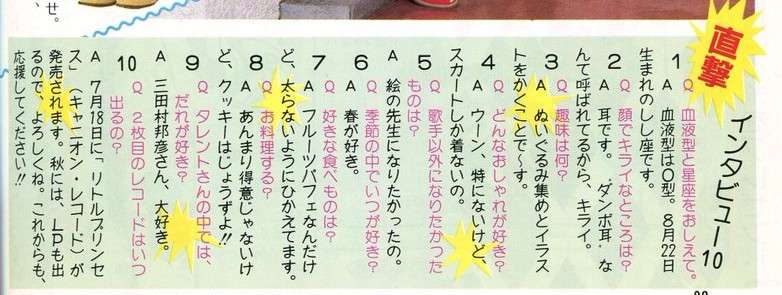 せ。
直撃
インタビュー10
1 Q 血液型と星座をおしえて。
A 血液型はO型。8月22日
生まれのしし座です。
2 Q 顔でキライなところは?
A 耳です。"ダンボ耳"な
んて呼ばれてるから、キライ。
3 Q 趣味は何?
A ぬいぐるみ集めとイラス
トをかくことで〜す。
4 Q どんなおしゃれが好き?
A ウーン、特にないけど、
スカートしか着ないの。
5 Q 歌手以外になりたかった
ものは?
A 絵の先生になりたかったの。
6 Q 季節の中でいつが好き?
A 春が好き。
7 Q 好きな食べものは?
A フルーツパフェなんだけ
ど、太らないようにひかえてます。
8 Q お料理する?
A あんまり得意じゃないけ
ど、クッキーはじょうずよ!!
9 Q タレントさんの中では、
だれが好き?
A 三田村邦彦さん、大好き。
10 Q 2枚目のレコードはいつ
出るの?
A 7月18日に「リトルプリンセ
ス」(キャニオン・レコード)が
発売されます。秋には、LPも出
るので、よろしくね。これからも、
応援してください!!